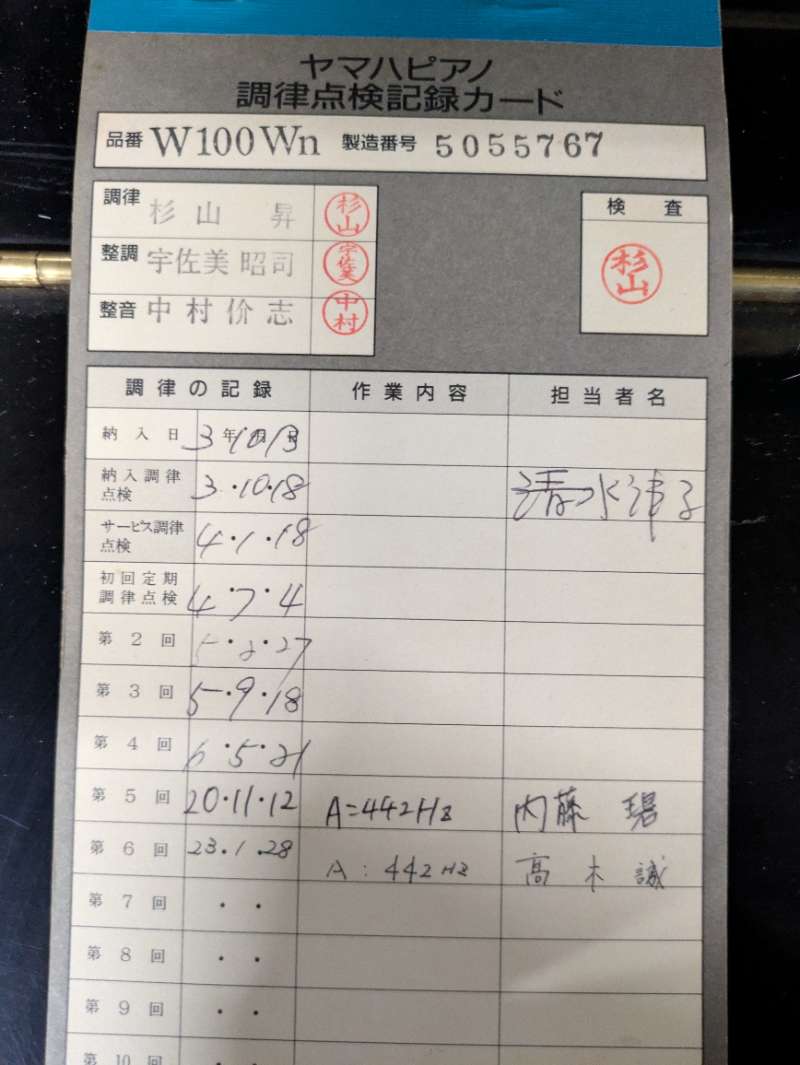 ヤマハピアノ
調律点検記録カード
品番 W100Wn 製造番号 5055767
調律 杉山 昇 杉山
整調 宇佐美昭司 宇佐美
整音 中村价志 中村
検査
杉山
調律の記録 作業内容 担当者名
納入日 3年10月13日
納入調律点検 3・10・18 清水津子
サービス調律点検 4・1・18
初回定期調律点検 4・7・4
第2回 5・2・27
第3回 5・9・18
第4回 6・5・21
第5回 20・11・12 A=442Hz 内藤 碧
第6回 23・1・28 A:442Hz 高木誠
第7回 ・・
第8回 ・・
第9回 ・・
第10回 ・・